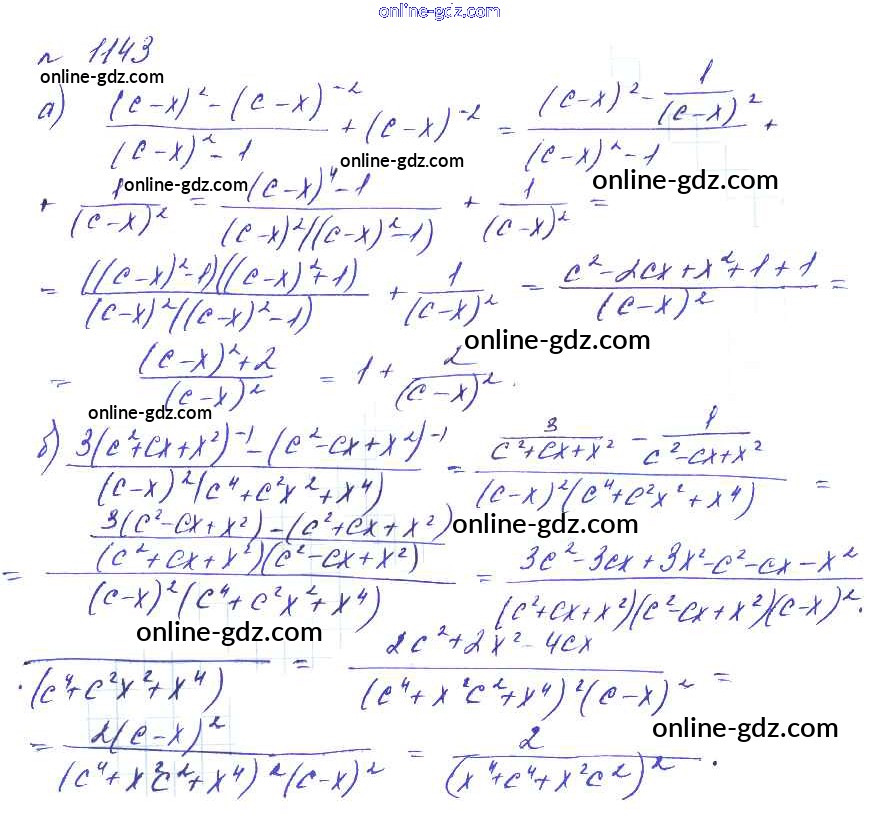 online-gdz.com
№ 1143
online-gdz.com
а) ((c-x)² - (c-x)⁻²)/((c-x)² - 1) + (c-x)⁻² = ((c-x)² - 1/(c-x)²)/((c-x)² - 1) +
online-gdz.com
online-gdz.com
online-gdz.com
+ 1/(c-x)² = ((c-x)⁴ - 1)/((c-x)²((c-x)² - 1)) + 1/(c-x)² =
= (((c-x)² - 1)((c-x)² + 1))/((c-x)²((c-x)² - 1)) + 1/(c-x)² = (c² - 2cx + x² + 1 + 1)/(c-x)² =
online-gdz.com
= ((c-x)² + 2)/(c-x)² = 1 + 2/(c-x)².
online-gdz.com
б) (3(c² + cx + x²)⁻¹ - (c² - cx + x²)⁻¹)/((c-x)²(c⁴ + c²x² + x⁴)) = (3/(c² + cx + x²) - 1/(c² - cx + x²))/((c-x)²(c⁴ + c²x² + x⁴)) =
online-gdz.com
= ((3(c² - cx + x²) - (c² + cx + x²))/((c² + cx + x²)(c² - cx + x²)))/((c-x)²(c⁴ + c²x² + x⁴)) = (3c² - 3cx + 3x² - c² - cx - x²)/((c² + cx + x²)(c² - cx + x²)(c-x)².
online-gdz.com
.(c⁴ + c²x² + x⁴) = (2c² + 2x² - 4cx)/((c⁴ + x²c² + x⁴)²(c-x)²) =
online-gdz.com
= (2(c-x)²)/((c⁴ + x²c² + x⁴)²(c-x)²) = 2/(x⁴ + c⁴ + x²c²)².